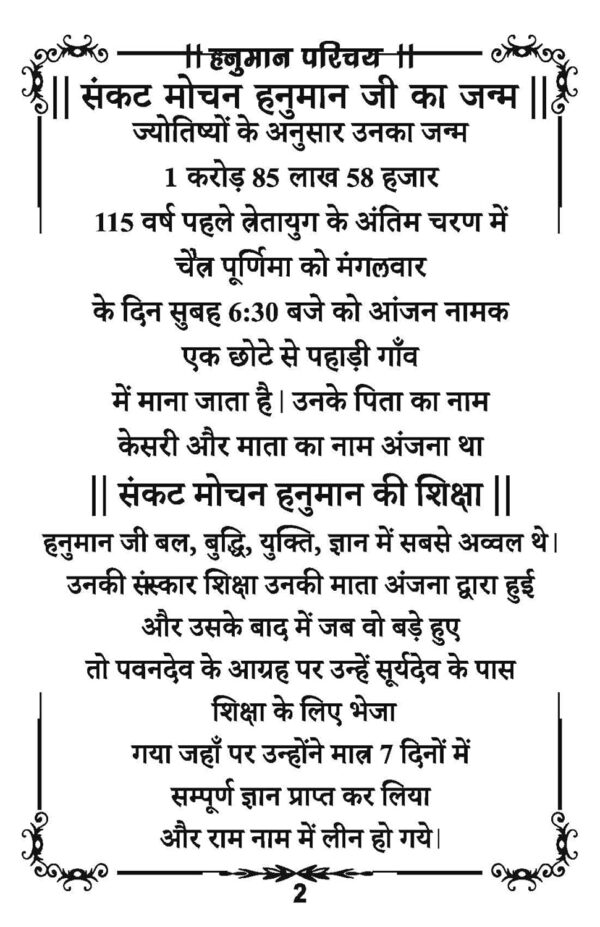 || हनुमान परिचय ||
|| संकट मोचन हनुमान जी का जन्म ||
ज्योतिष्यों के अनुसार उनका जन्म
1 करोड़ 85 लाख 58 हजार
115 वर्ष पहले त्रेतायुग के अंतिम चरण में
चैत्र पूर्णिमा को मंगलवार
के दिन सुबह 6:30 बजे को आंजन नामक
एक छोटे से पहाड़ी गाँव
में माना जाता है| उनके पिता का नाम
केसरी और माता का नाम अंजना था
|| संकट मोचन हनुमान की शिक्षा ||
हनुमान जी बल, बुद्धि, युक्ति, ज्ञान में सबसे अव्वल थे|
उनकी संस्कार शिक्षा उनकी माता अंजना द्वारा हुई
और उसके बाद में जब वो बड़े हुए
तो पवनदेव के आग्रह पर उन्हें सूर्यदेव के पास
शिक्षा के लिए भेजा
गया जहाँ पर उन्होंने मात्र 7 दिनों में
सम्पूर्ण ज्ञान प्राप्त कर लिया
और राम नाम में लीन हो गये|
2